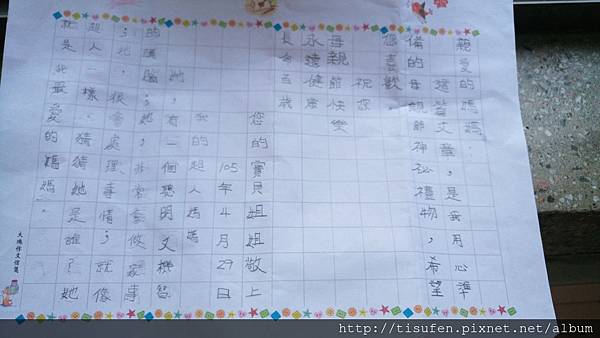 親愛的媽媽：
這篇文章，是我用心準
備的母親節神秘禮物，希望
您喜歡。
祝您
母親節快樂
永遠健康
長命百歲
您的寶貝姐姐敬上
105年4月29日
我的超人媽媽
她，有一個聰明又機智
的頭腦；她，非常會做家事
；她，很會處理事情；就像
超人一樣。猜猜她是誰？她
就是我最愛的媽媽。
大鴻作文信箋
http://tisufen.pixnet.net/album